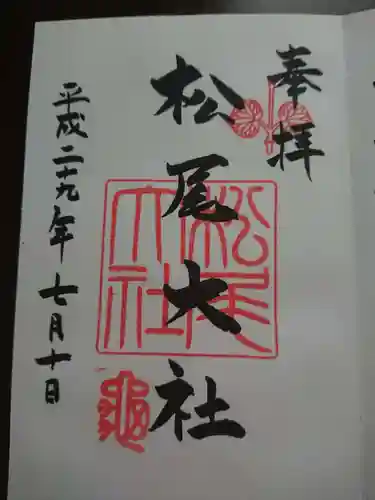 奉拝
松尾大社
松尾大社
平成二十九年七月十日